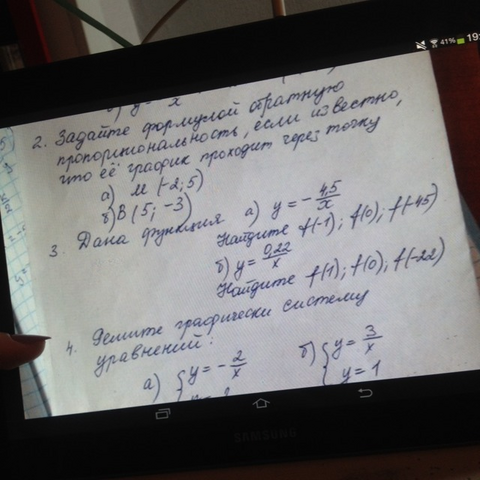 41% 19:
б) y = x
2. Задайте формулой обратную
пропорциональность, если известно,
что её график проходит через точку
а) M (-2; 5)
б) B (5; -3)
3. Дана функция а) y = - 4,5/x
Найдите f(-1); f(0); f(-45)
б) y = 0,22/x
Найдите f(1); f(0); f(-22)
4. Решите графически систему
уравнений:
а) { y = - 2/x б) { y = 3/x
y = 1
SAMSUNG